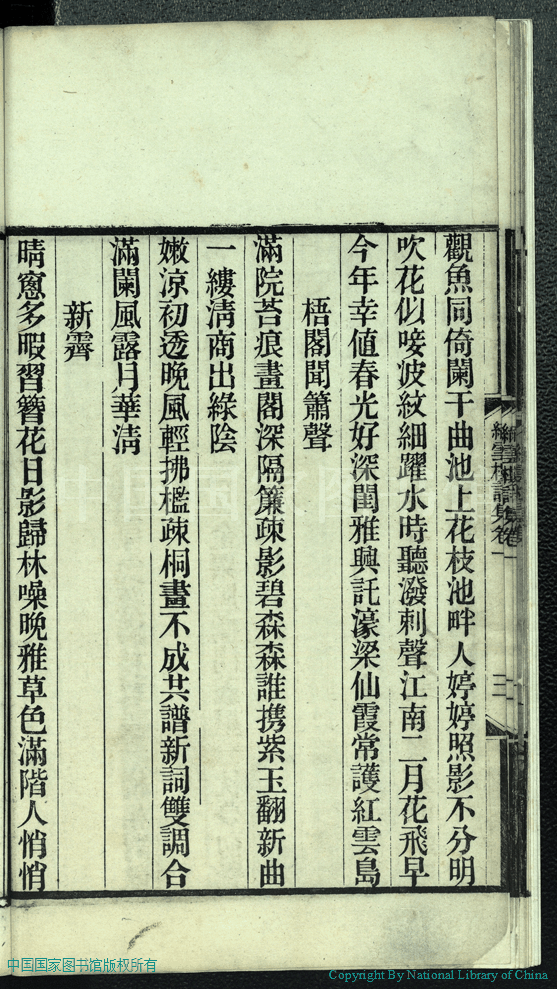 觀魚同倚闌干曲池上花枝池畔人婷婷照影不分明
吹花似唼波紋細躍水時聽潑刺聲江南二月花飛早
今年幸值春光好深閨雅興託濠梁仙霞常護紅雲島
梧閣聞簫聲
滿院苔痕畫閣深隔簾疎影碧森森誰携紫玉翻新曲
一縷淸商出綠陰
嫩涼初透晚風輕拂檻疎桐畫不成共譜新詞雙調合
滿闌風露月華淸
新霽
晴窻多暇習簪花日影歸林噪晚雅草色滿階人悄悄
詩集卷一
三
中国国家图书馆版权所有
Copyright By National Library of China